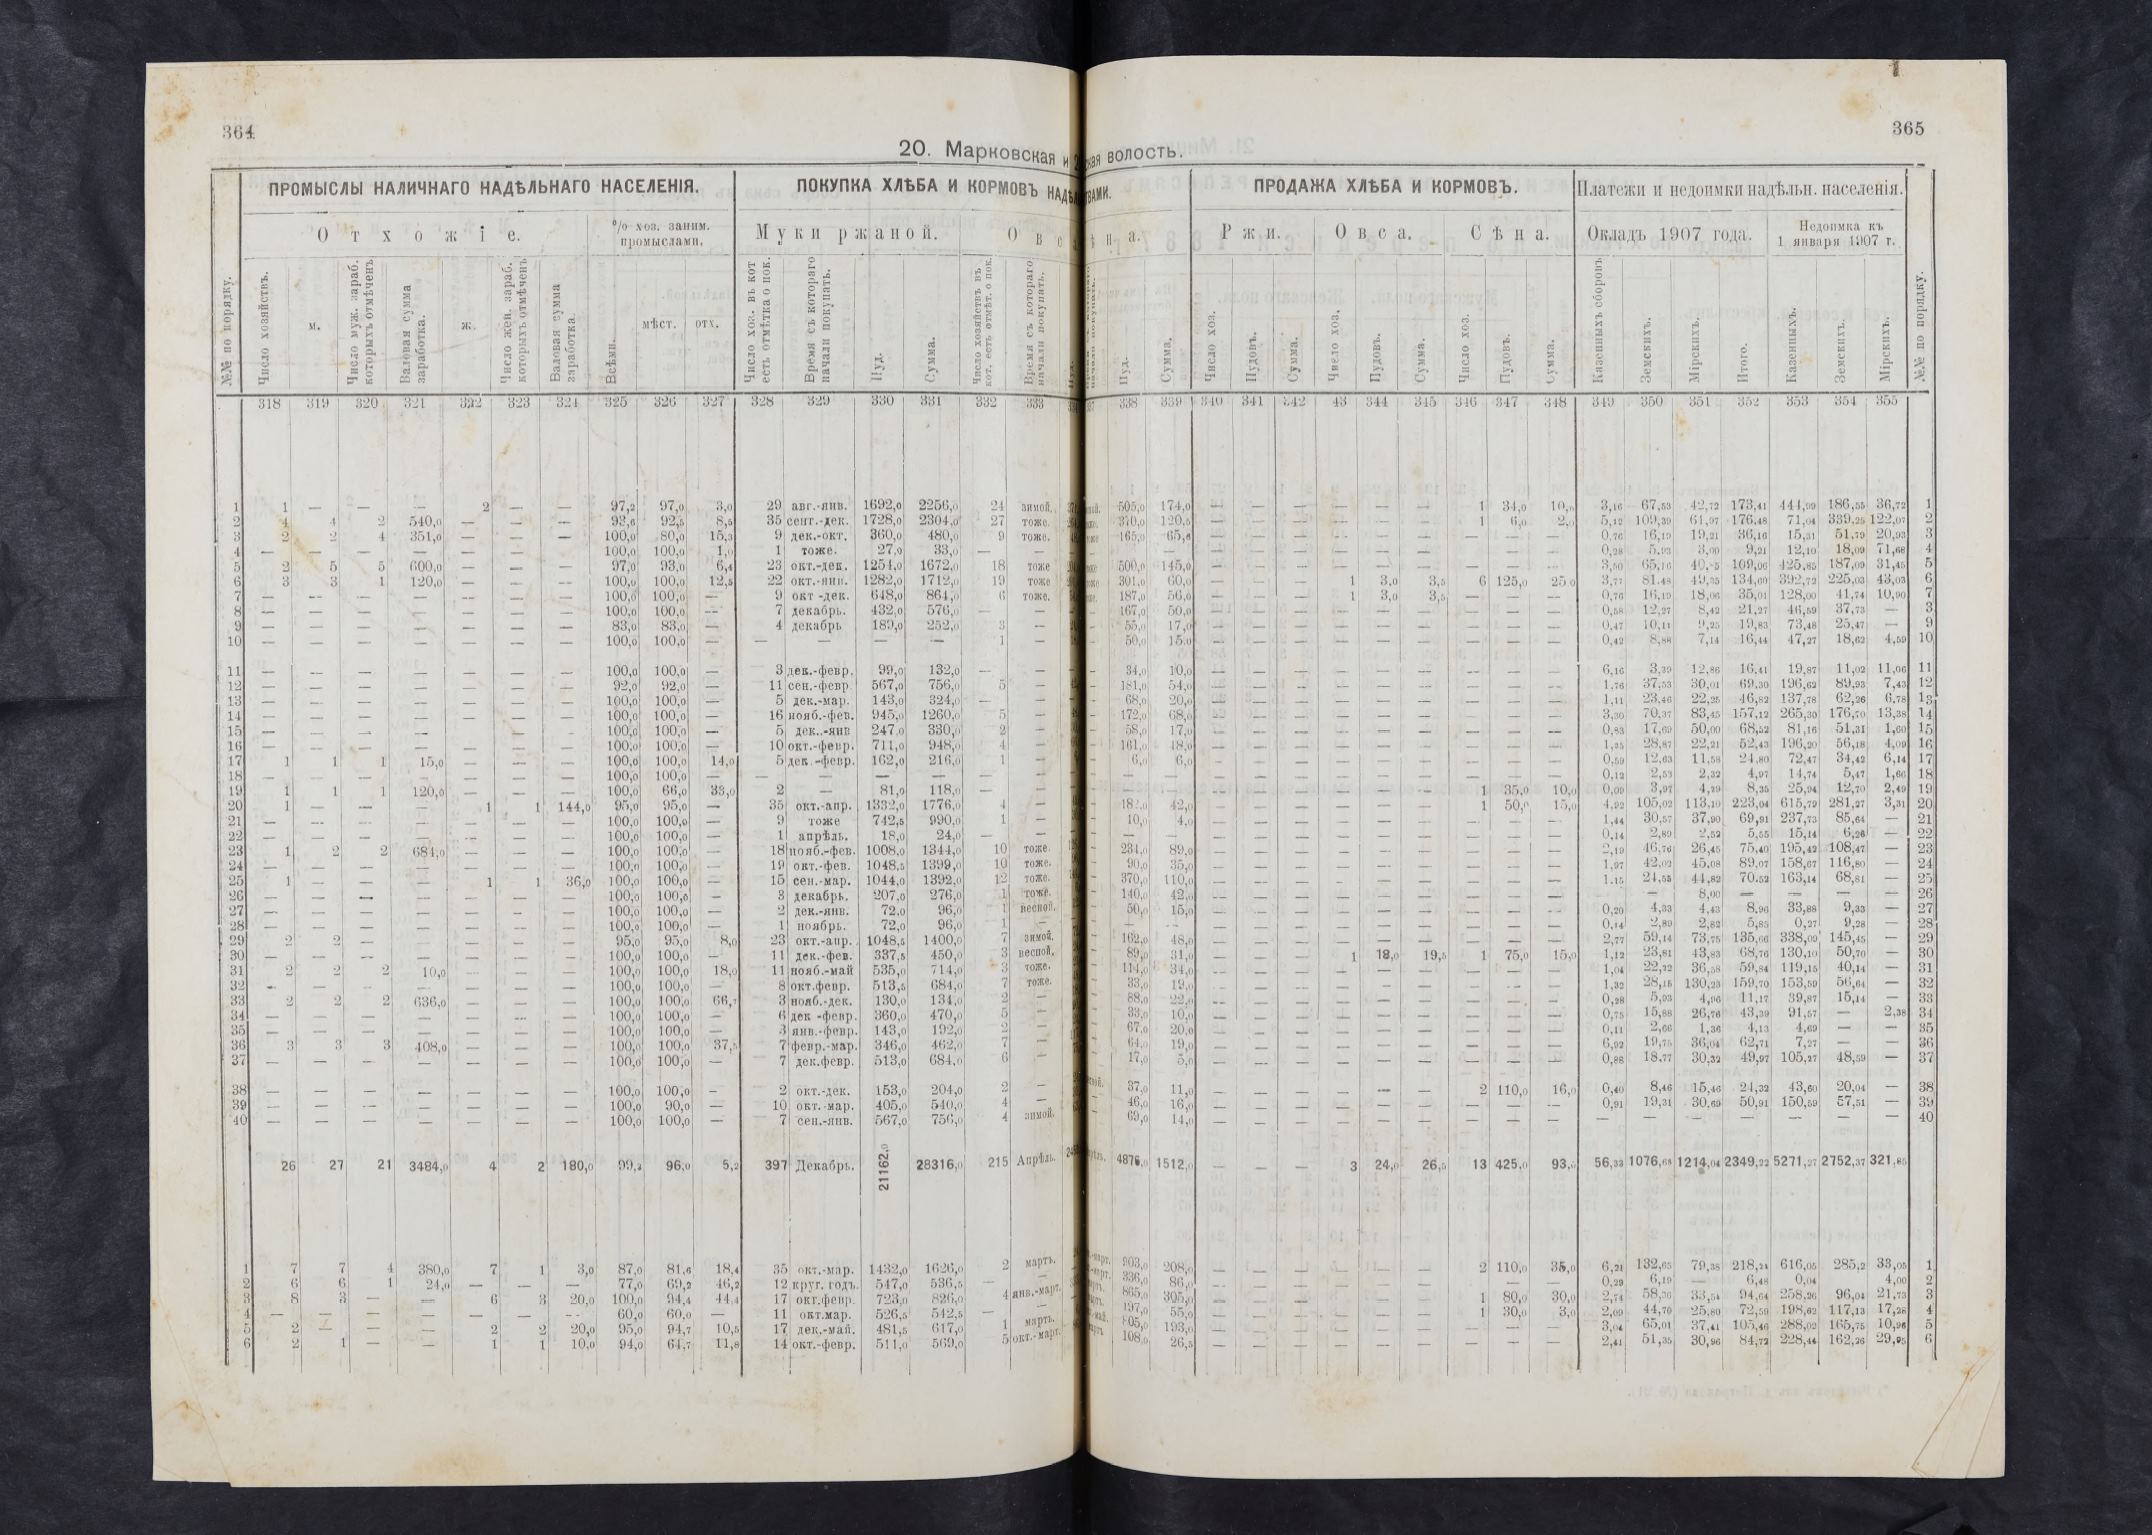 364
365
20. Марковская и
кая волость.
ПРОМЫСЛЫ НАЛИЧНАГО НАДѢЛЬНАГО НАСЕЛЕНІЯ. ПОКУПКА ХЛѢБА И КОРМОВЪ НАДѢЛ
ТВАМИ. ПРОДАЖА ХЛѢБА И КОРМОВЪ. Платежи и недоимки надѣльн. населенія.
Отхожіе. % хоз. заним. промыслами. Муки ржаной. Овса
ѣна. Ржи. Овса. Сѣна. Окладъ 1907 года. Недоимка къ 1 января 1907 г.
№№ по порядку. Число хозяйствъ. м. Число муж. зараб. которыхъ отмѣченъ Валовая сумма заработка. ж. Число жен. зараб. которыхъ отмѣченъ Валовая сумма заработка. Всѣми. мѣст. отх. Число хоз. въ кот есть отмѣтка о пок. Время съ котораго начали покупать. Пуд. Сумма. Число хозяйствъ въ кот. есть отмѣт. о пок. Время съ котораго начали покупать.
Пуд. Сумма. Число хоз. Пудовъ. Сумма. Число хоз. Пудовъ. Сумма. Число хоз. Пудовъ. Сумма. Казенныхъ сборовъ Земскихъ. Мірскихъ. Итого. Казенныхъ. Земскихъ. Мірскихъ. №№ по порядку.
318 319 320 321 322 323 324 325 326 327 328 329 330 331 332 333
338 339 340 341 342 43 344 345 346 347 348 349 350 351 352 353 354 355
1 1 — — — 2 — — 97,2 97,0 3,0 29 авг.-янв. 1692,0 2256,0 24 зимой.
2 4 4 2 540,0 — — — 93,6 92,5 8,5 35 сент.-дек. 1728,0 2304,0 27 тоже.
3 2 2 4 351,0 — — — 100,0 80,0 15,3 9 дек.-окт. 360,0 480,0 9 тоже.
4 — — — — — — — 100,0 100,0 1,0 1 тоже. 27,0 33,0 — —
5 2 5 5 600,0 — — — 97,0 93,0 6,4 23 окт.-дек. 1254,0 1672,0 18 тоже
6 3 3 1 120,0 — — — 100,0 100,0 12,5 22 окт.-янв. 1282,0 1712,0 19 тоже
7 — — — — — — — 100,0 100,0 — 9 окт -дек. 648,0 864,0 6 тоже.
8 — — — — — — — 100,0 100,0 — 7 декабрь. 432,0 576,0 — —
9 — — — — — — — 83,0 83,0 — 4 декабрь 189,0 252,0 3 —
10 — — — — — — — 100,0 100,0 — — — — — 1 —
11 — — — — — — — 100,0 100,0 — 3 дек.-февр. 99,0 132,0 — —
12 — — — — — — — 92,0 92,0 — 11 сен.-февр. 567,0 756,0 5 —
13 — — — — — — — 100,0 100,0 — 5 дек.-мар. 143,0 324,0 — —
14 — — — — — — — 100,0 100,0 — 16 нояб.-фев. 945,0 1260,0 5 —
15 — — — — — — — 100,0 100,0 — 5 дек..-янв 247,0 330,0 2 —
16 — — — — — — — 100,0 100,0 — 10 окт.-февр. 711,0 948,0 4 —
17 1 1 1 15,0 — — — 100,0 100,0 14,0 5 дек.-февр. 162,0 216,0 1 —
18 — — — — — — — 100,0 100,0 — — — — — — —
19 1 1 1 120,0 — — — 100,0 66,0 33,0 2 — 81,0 118,0 — —
20 1 — — — 1 1 144,0 95,0 95,0 — 35 окт.-апр. 1332,0 1776,0 4 —
21 — — — — — — — 100,0 100,0 — 9 тоже 742,5 990,0 1 —
22 — — — — — — — 100,0 100,0 — 1 апрѣль. 18,0 24,0 — —
23 1 2 2 684,0 — — — 100,0 100,0 — 18 нояб.-фев. 1008,0 1344,0 10 тоже.
24 — — — — — — — 100,0 100,0 — 19 окт.-фев. 1048,5 1399,0 10 тоже.
25 1 — — — 1 1 36,0 100,0 100,0 — 15 сен.-мар. 1044,0 1392,0 12 тоже.
26 — — — — — — — 100,0 100,0 — 3 декабрь. 207,0 276,0 1 тоже.
27 — — — — — — — 100,0 100,0 — 2 дек.-янв. 72,0 96,0 1 весной.
28 — — — — — — — 100,0 100,0 — 1 ноябрь. 72,0 96,0 1 —
29 2 2 — — — — — 95,0 95,0 8,0 23 окт.-апр. 1048,5 1400,0 7 зимой.
30 — — — — — — — 100,0 100,0 — 11 дек.-фев. 337,5 450,0 3 весной.
31 2 2 2 10,0 — — — 100,0 100,0 18,0 11 нояб.-май 535,0 714,0 3 тоже.
32 — — — — — — — 100,0 100,0 — 8 окт.февр. 513,5 684,0 7 тоже.
33 2 2 2 636,0 — — — 100,0 100,0 66,7 3 нояб.-дек. 130,0 134,0 2 —
34 — — — — — — — 100,0 100,0 — 6 дек -февр. 360,0 470,0 5 —
35 — — — — — — — 100,0 100,0 — 3 янв.-февр. 143,0 192,0 2 —
36 3 3 3 408,0 — — — 100,0 100,0 37,5 7 февр.-мар. 346,0 462,0 7 —
37 — — — — — — — 100,0 100,0 — 7 дек.февр. 513,0 684,0 6 —
38 — — — — — — — 100,0 100,0 — 2 окт.-дек. 153,0 204,0 2 —
39 — — — — — — — 100,0 90,0 — 10 окт.-мар. 405,0 540,0 4 —
40 — — — — — — — 100,0 100,0 — 7 сен.-янв. 567,0 756,0 4 зимой.
26 27 21 3484,0 4 2 180,0 99,2 96,0 5,2 397 Декабрь. 21162,0 28316,0 215 Апрѣль.
1 7 7 4 380,0 7 1 3,0 87,0 81,6 18,4 35 окт.-мар. 1432,0 1626,0 2 мартъ.
2 6 6 1 24,0 — — — 77,0 69,2 46,2 12 круг. годъ. 547,0 536,5 — —
3 8 3 — — 6 3 20,0 100,0 94,4 44,4 17 окт.февр. 723,0 826,0 4 янв.-март.
4 — — — — — — — 60,0 60,0 — 11 окт.мар. 526,5 542,5 — —
5 2 — — — 2 2 20,0 95,0 94,7 10,5 17 дек.-май. 481,5 617,0 1 мартъ.
6 2 1 — — 1 1 10,0 94,0 64,7 11,8 14 окт.-февр. 511,0 569,0 5 окт.-март.
505,0 174,0 — — — — — — 1 34,0 10,0 3,16 67,53 42,72 173,41 444,99 186,55 36,72 1
310,0 120,5 — — — — — — 1 6,0 2,0 5,12 109,39 61,97 176,48 71,04 339,25 122,07 2
165,0 65,8 — — — — — — — — — 0,76 16,19 19,21 36,16 15,31 51,79 20,93 3
— — — — — — — — — — — 0,28 5,93 3,00 9,21 12,10 18,09 71,68 4
500,0 145,0 — — — — — — — — — 3,50 65,16 109,06 425,85 187,09 31,45 5
301,0 60,0 — — — 1 3,0 3,5 6 125,0 25,0 3,77 81,48 49,35 134,60 392,72 225,03 43,03 6
187,0 56,0 — — — 1 3,0 3,5 — — — 0,76 16,19 18,06 35,01 128,00 41,74 10,90 7
167,0 50,0 — — — — — — — — — 0,58 12,27 8,42 21,27 46,59 37,73 — 8
55,0 17,0 — — — — — — — — — 0,47 10,11 9,25 19,83 73,48 25,47 — 9
50,0 15,0 — — — — — — — — — 0,42 8,88 7,14 16,44 47,27 18,62 4,59 10
34,0 10,0 — — — — — — — — — 6,16 3,39 12,86 16,41 19,87 11,02 11,06 11
181,0 54,0 — — — — — — — — — 1,76 37,53 30,01 69,30 196,62 89,93 7,43 12
68,0 20,0 — — — — — — — — — 1,11 23,46 22,25 46,82 137,78 62,26 6,78 13
172,0 68,0 — — — — — — — — — 3,30 70,37 83,45 157,12 265,30 176,70 13,38 14
58,0 17,0 — — — — — — — — — 0,83 17,69 50,00 68,52 81,16 51,31 1,60 15
161,0 48,0 — — — — — — — — — 1,35 28,87 22,21 52,43 196,20 56,18 4,09 16
6,0 6,0 — — — — — — — — — 0,59 12,63 11,58 24,80 72,47 34,42 6,14 17
— — — — — — — — — — — 0,12 2,53 2,32 4,97 14,74 5,47 1,66 18
— — — — — — — — 1 35,0 10,0 0,09 3,97 4,29 8,35 25,94 12,70 2,49 19
182,0 42,0 — — — — — — 1 50,0 15,0 4,92 105,02 113,10 223,04 615,79 281,27 3,31 20
10,0 4,0 — — — — — — — — — 1,44 30,57 37,90 69,91 237,73 85,64 — 21
— — — — — — — — — — — 0,14 2,89 2,52 5,55 15,14 6,26 — 22
234,0 89,0 — — — — — — — — — 2,19 46,76 26,45 75,40 195,42 108,47 — 23
90,0 35,0 — — — — — — — — — 1,97 42,02 45,08 89,07 158,67 116,80 — 24
370,0 110,0 — — — — — — — — — 1,15 24,55 44,82 70,52 163,14 68,81 — 25
140,0 42,0 — — — — — — — — — — — 8,00 — — — — 26
50,0 15,0 — — — — — — — — — 0,20 4,33 4,43 8,96 33,88 9,33 — 27
— — — — — — — — — — — 0,14 2,89 2,82 5,85 0,27 9,28 — 28
162,0 48,0 — — — — — — — — — 2,77 59,14 73,75 135,66 338,09 145,45 — 29
89,0 31,0 — — — 1 18,0 19,5 1 75,0 15,0 1,12 23,81 43,83 68,76 130,10 50,70 — 30
114,0 34,0 — — — — — — — — — 1,04 22,22 36,58 59,84 119,15 40,14 — 31
33,0 19,0 — — — — — — — — — 1,32 28,15 130,23 159,70 153,59 56,64 — 32
88,0 22,0 — — — — — — — — — 0,28 5,93 4,96 11,17 39,87 15,14 — 33
33,0 10,0 — — — — — — — — — 0,75 15,88 26,76 43,39 91,57 — 2,38 34
67,0 20,0 — — — — — — — — — 0,11 2,66 1,36 4,13 4,69 — — 35
64,0 19,0 — — — — — — — — — 6,92 19,75 36,04 62,71 7,27 — — 36
17,0 5,0 — — — — — — — — — 0,88 18,77 30,32 49,97 105,27 48,59 — 37
37,0 11,0 — — — — — — 2 110,0 16,0 0,40 8,46 15,46 24,32 43,60 20,04 — 38
46,0 16,0 — — — — — — — — — 0,91 19,31 30,69 50,91 150,59 57,51 — 39
69,0 14,0 — — — — — — — — — — — — — — — — 40
4876,0 1512,0 — — — 3 24,0 26,5 13 425,0 93,0 56,33 1076,68 1214,04 2349,22 5271,27 2752,37 321,85
903,0 208,0 — — — — — — 2 110,0 35,0 6,21 132,65 79,38 218,24 616,05 285,2 33,05 1
336,0 86,0 — — — — — — — — — 0,29 6,19 — 6,48 0,04 4,00 2
865,0 305,0 — — — — — — 1 80,0 30,0 2,74 58,36 33,54 94,64 258,26 96,04 21,73 3
197,0 55,0 — — — — — — 1 30,0 3,0 2,09 44,70 25,80 72,59 198,62 117,13 17,28 4
805,0 193,0 — — — — — — — — — 3,04 65,01 37,41 105,46 288,02 165,75 10,96 5
108,0 26,5 — — — — — — — — — 2,41 51,35 30,96 84,72 228,44 162,26 29,95 6